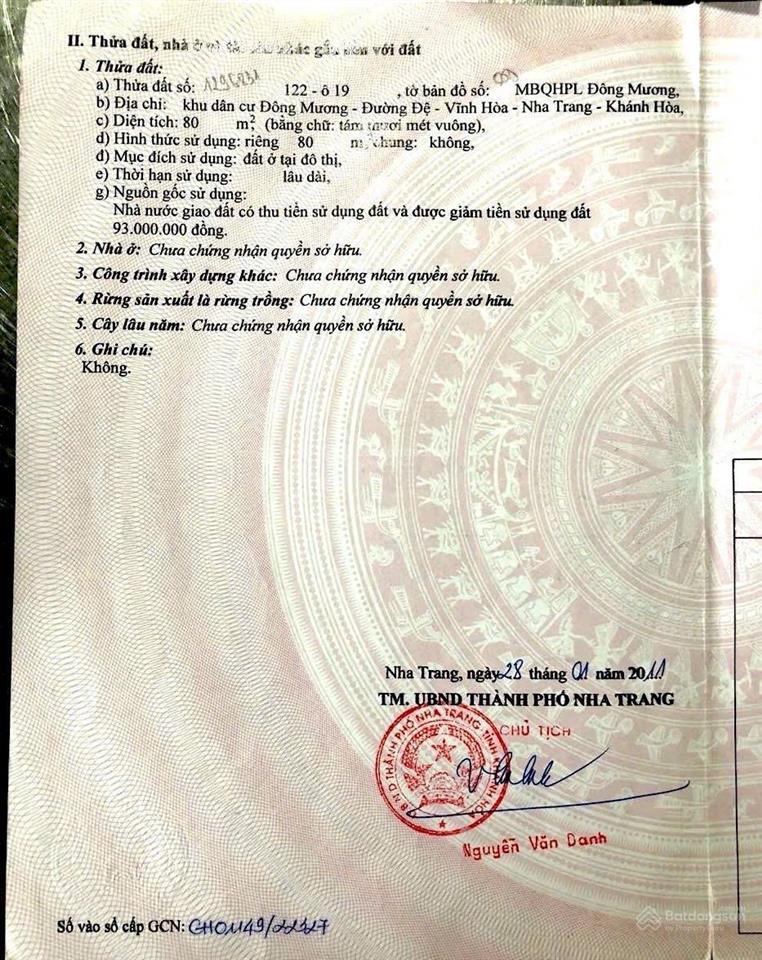 II. Thửa đất, nhà ở và tài sản khác gắn liền với đất
1. Thửa đất:
a) Thửa đất số: 122 - ô 19 , tờ bản đồ số: MBQHPL Đông Mương,
b) Địa chỉ: khu dân cư Đông Mương - Đường Đệ - Vĩnh Hòa - Nha Trang - Khánh Hòa,
c) Diện tích: 80 m², (bằng chữ: tám mươi mét vuông),
d) Hình thức sử dụng: riêng 80 m², chung: không,
đ) Mục đích sử dụng: đất ở tại đô thị,
e) Thời hạn sử dụng: lâu dài,
g) Nguồn gốc sử dụng:
Nhà nước giao đất có thu tiền sử dụng đất và được giảm tiền sử dụng đất
93.000.000 đồng.
2. Nhà ở: Chưa chứng nhận quyền sở hữu.
3. Công trình xây dựng khác: Chưa chứng nhận quyền sở hữu.
4. Rừng sản xuất là rừng trồng: Chưa chứng nhận quyền sở hữu.
5. Cây lâu năm: Chưa chứng nhận quyền sở hữu.
6. Ghi chú:
Không.
Nha Trang, ngày 28 tháng 01 năm 2011
TM. UBND THÀNH PHỐ NHA TRANG
CHỦ TỊCH
Nguyễn Văn Danh
Số vào sổ cấp GCN: CH01149/22127
Batdongsan
by PropertyGuru